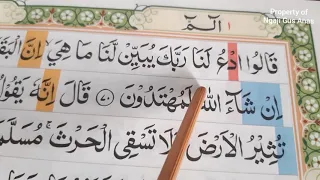 Property of
Ngaji Gus Anas
١ الٓمّٓ ١
قَالُوا ادْعُ لَنَا رَبَّكَ يُبَيِّنْ لَنَا مَا هِيَ اِنَّ الْبَقَ
اِنْ شَآءَ اللّٰهُ لَمُهْتَدُوْنَ ﴿٧٠﴾ قَالَ اِنَّهٗ يَقُوْلُ
تُثِيْرُ الْاَرْضَ وَلَا تَسْقِى الْحَرْثَ مُسَلَّمَ